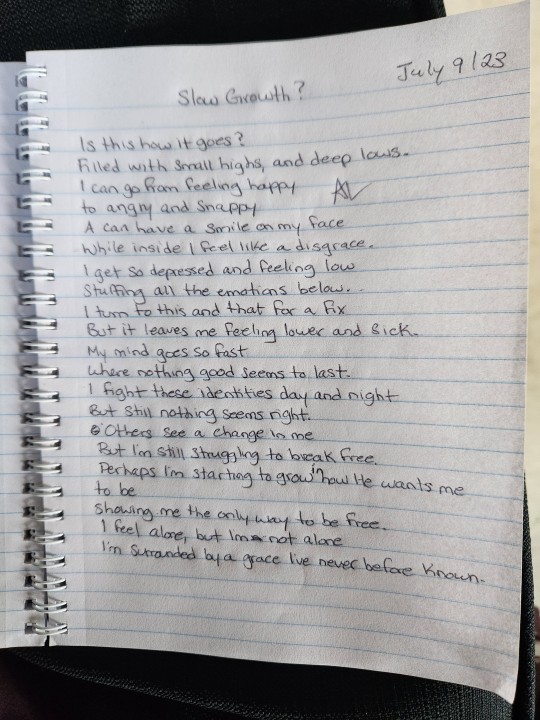 July 9/23
Slow Growth?
Is this how it goes?
Filled with small highs, and deep lows.
I can go from feeling happy
to angry and snappy
A can have a smile on my face
While inside I feel like a disgrace.
I get so depressed and feeling low
Stuffing all the emotions below..
I turn to this and that for a fix
But it leaves me feeling lower and sick.
My mind goes so fast
Where nothing good seems to last.
I fight these identities day and night
But still nothing seems right.
Others see a change in me
But I'm still struggling to break free.
Perhaps I'm starting to grow in how He wants me
to be
showing me the only way to be free.
I feel alone, but I'm not alone
I'm surranded by a grace I've never before known.